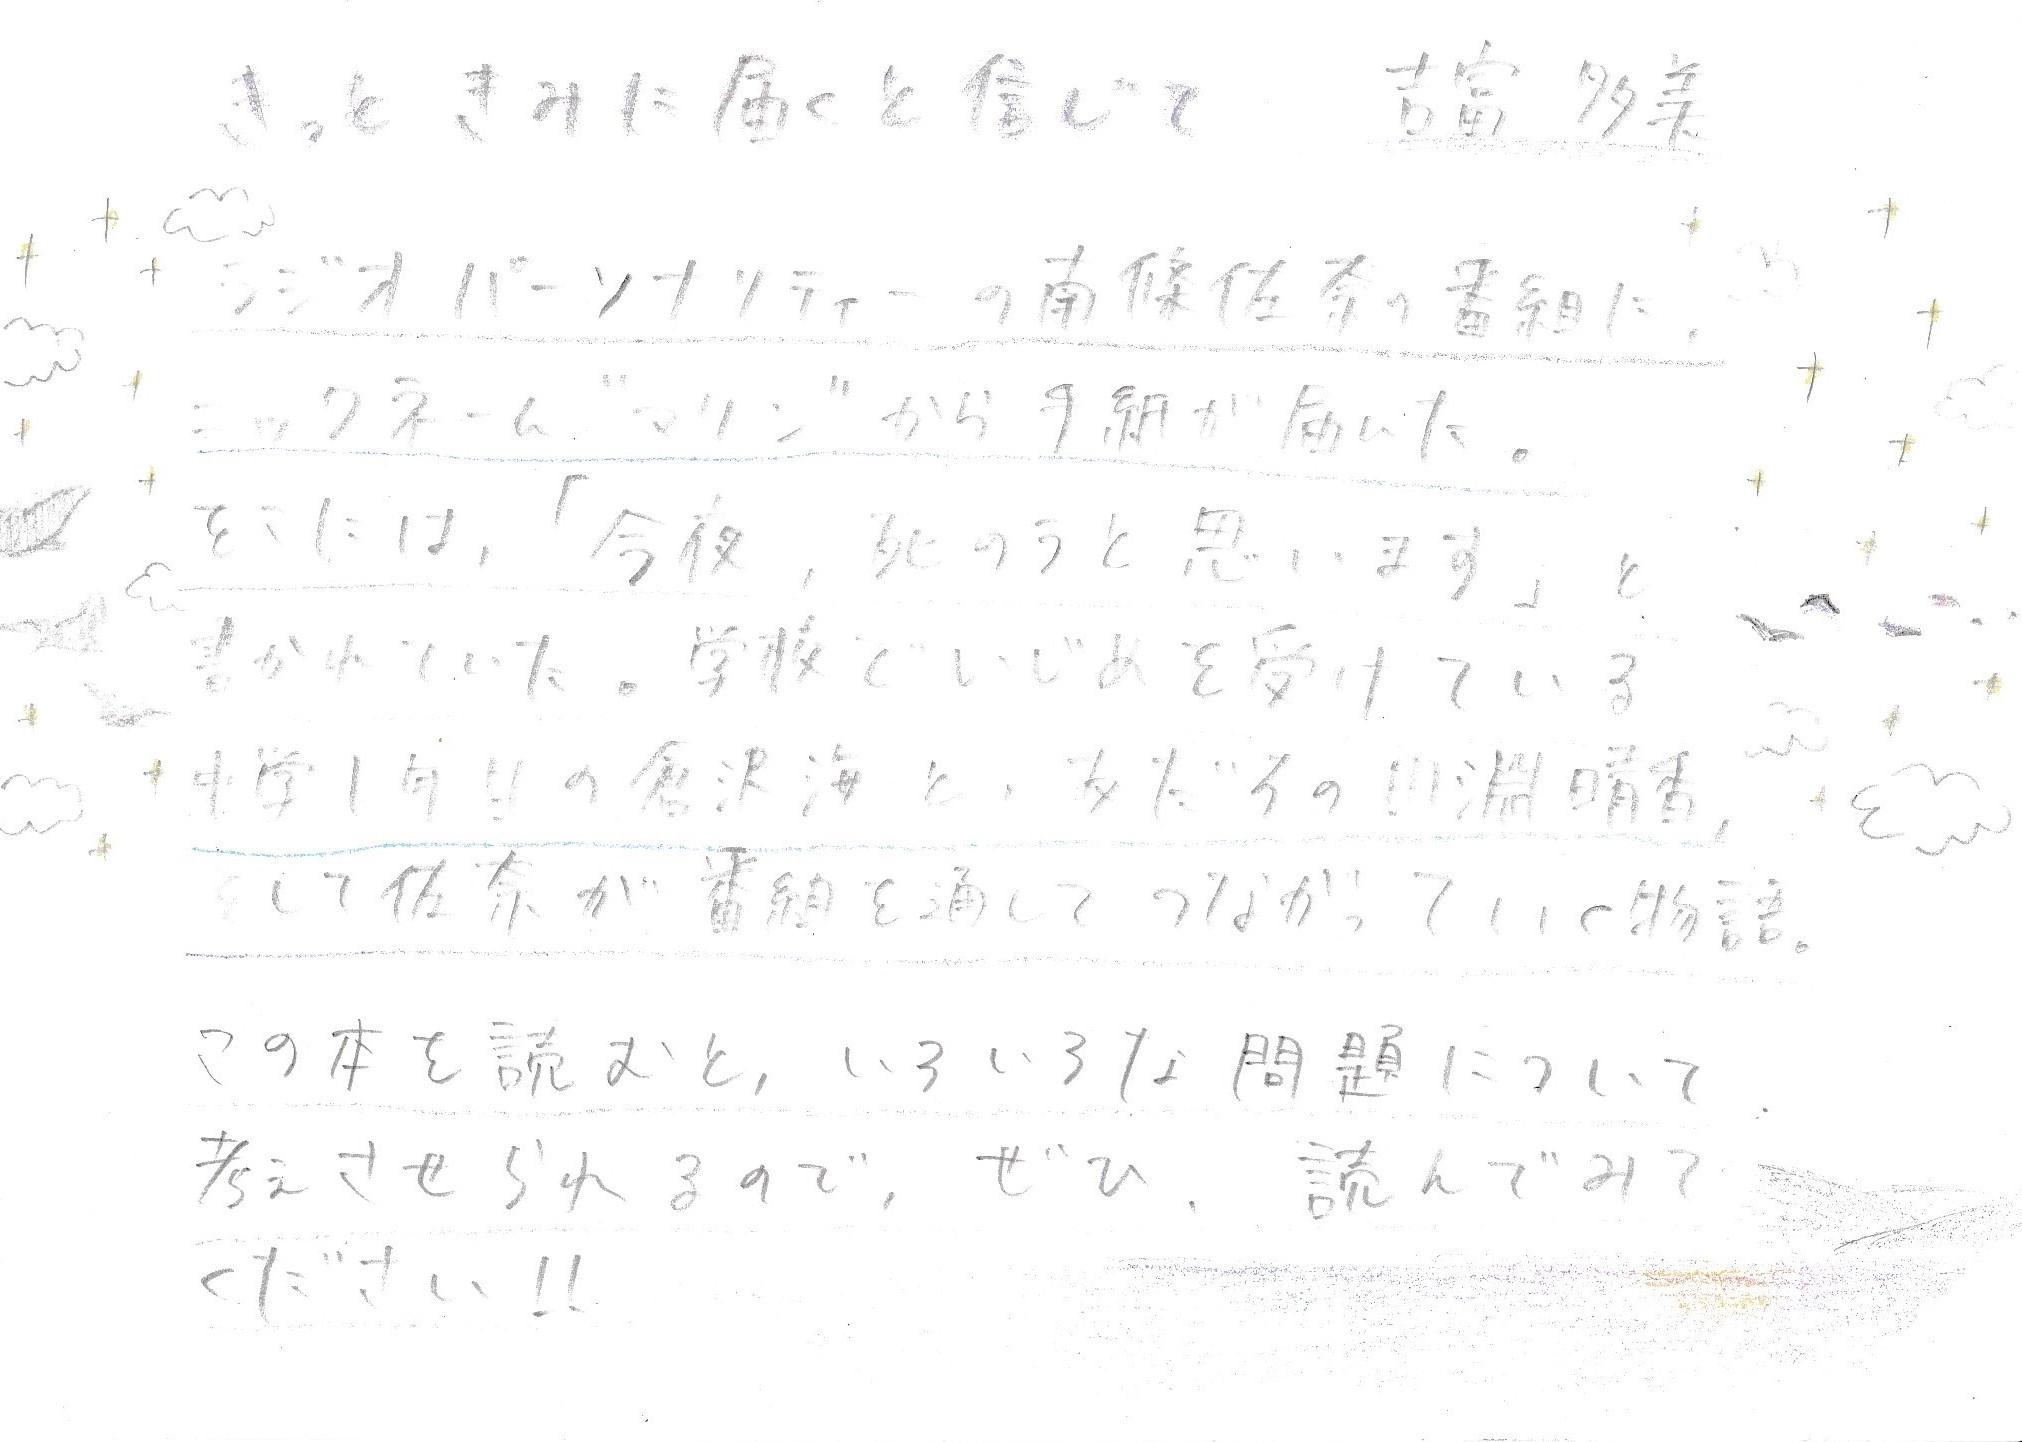 きっと きみに届くと信じて 吉富 多美
ラジオパーソナリティーの南條佐奈の番組に、
ニックネーム"マリン"から手紙が届いた。
そこには,「今夜,死のうと思います」と
書かれていた。学校でいじめを受けている
中学1年生の倉沢海と、友だちの川淵晴香,
そして佐奈が番組を通してつながっていく物語。
この本を読むと,いろいろな問題について
考えさせられるので,ぜひ、読んでみて
ください!!